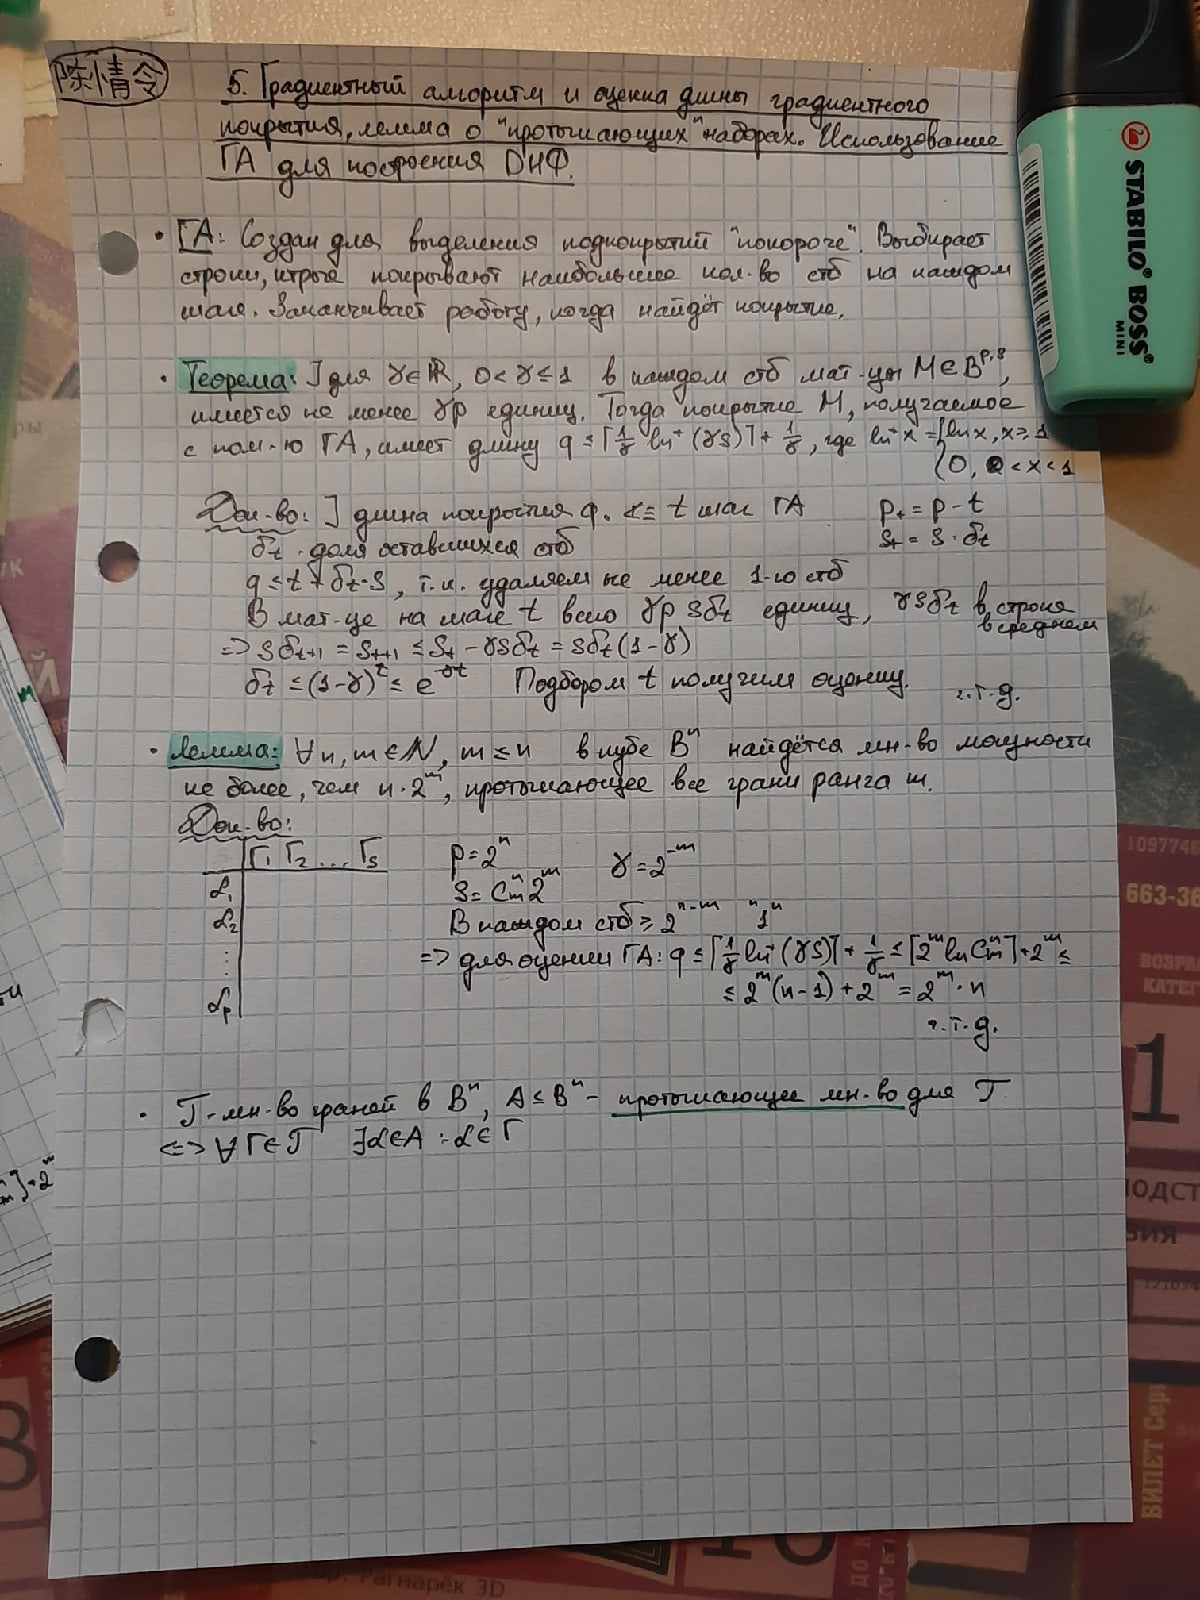 陈情令
5. Градиентный алгоритм и оценка длины градиентного
покрытия, лемма о "протыкающих" наборах. Использование
ГА для построения ДНФ.
• ГА: Создан для выделения подпокрытий "покороче". Выбирает
строки, ктрые покрывают наибольшее кол-во стб на каждом
шаге. Заканчивает работу, когда найдёт покрытие.
• Теорема: ] для γ∈ℝ, 0<γ≤1 в каждом стб мат-цы M∈B^{p,s},
имеется не менее γp единиц. Тогда покрытие M, получаемое
с пом-ю ГА, имеет длину q ≤ ⌈1/γ ln⁺(γs)⌉ + 1/γ, где ln⁺x = {ln x, x ≥ 1
{0, 0<x<1
Док-во: ] длина покрытия q. t шаг ГА p_t = p - t
δ_t - доля оставшихся стб s_t = s·δ_t
q ≤ t + δ_t·s, т.к. удаляем не менее 1-го стб
В мат-це на шаге t всего γp sδ_t единиц, γsδ_t в строке
в среднем
=> sδ_{t+1} = s_{t+1} ≤ s_t - γsδ_t = sδ_t(1-γ)
δ_t ≤ (1-γ)^t ≤ e^{-γt} Подбором t получим оценку. ч.т.д.
• Лемма: ∀n, m∈N, m≤n в кубе Bⁿ найдётся мн-во мощности
не более, чем n·2^m, протыкающее все грани ранга m.
Док-во:
Γ₁ Γ₂ ... Γs p = 2ⁿ γ = 2^{-m}
α₁ s = C_m^n 2^m
α₂ В каждом стб ≥ 2^{n-m} "1"
⋮ => для оценки ГА: q ≤ ⌈1/γ ln⁺(γs)⌉ + 1/γ ≤ ⌈2^m ln C_m^n⌉ + 2^m ≤
αp ≤ 2^m(n-1) + 2^m = 2^m·n
ч.т.д.
• T - мн-во граней в Bⁿ, A ≤ Bⁿ - протыкающее мн-во для T
<=> ∀Γ∈T ∃α∈A : α∈Γ
STABILO® BOSS®
MINI
1097746
663-36
ВОЗРА
КАТЕГ
1
ПОДСТ
ЗИЯ
БИЛЕТ Сер
Рагнарёк 3D
8